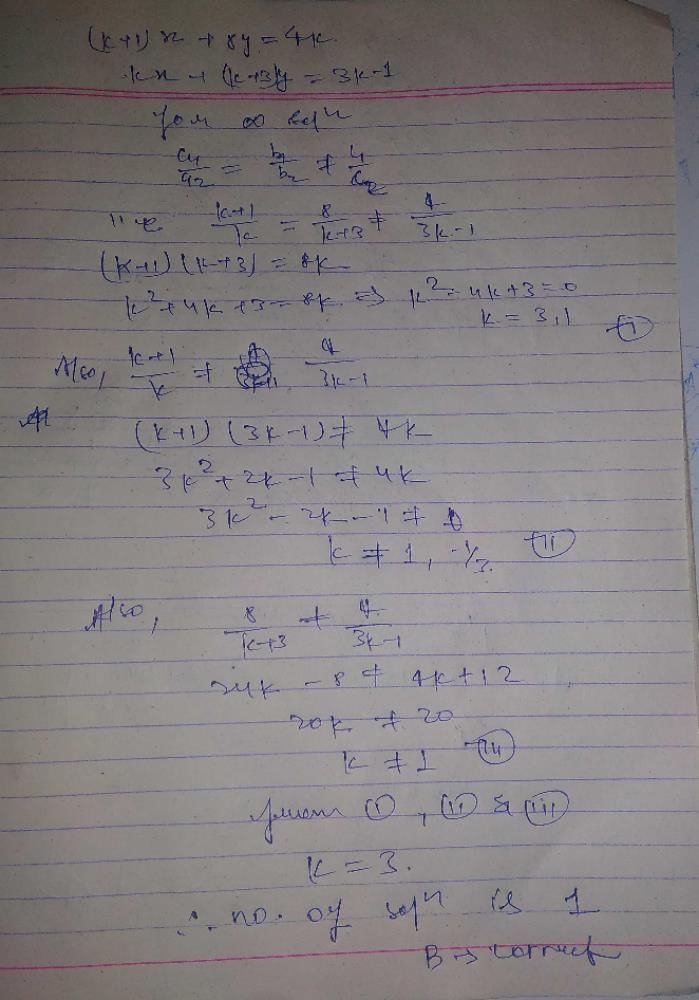 (k+1)x + 8y = 4k.
kx + (k+3)y = 3k-1
for ∞ solⁿ
a1/a2 = b1/b2 ≠ c1/c2
k+1/k = 8/k+3 ≠ 4/3k-1
(k+1)(k+3) = 8k
k²+4k+3=8k ⇒ k²-4k+3=0
k = 3,1 (i)
Also, k+1/k ≠ 4/3k-1
(k+1) (3k-1) ≠ 4k
3k²+2k-1 ≠ 4k
3k²-2k-1 ≠ 0
k ≠ 1, -1/3. (ii)
Also, 8/k+3 ≠ 4/3k-1
24k - 8 ≠ 4k+12
20k ≠ 20
k ≠ 1 (iii)
from (i), (ii) & (iii)
k = 3.
∴ no. of solⁿ is 1
B → correct